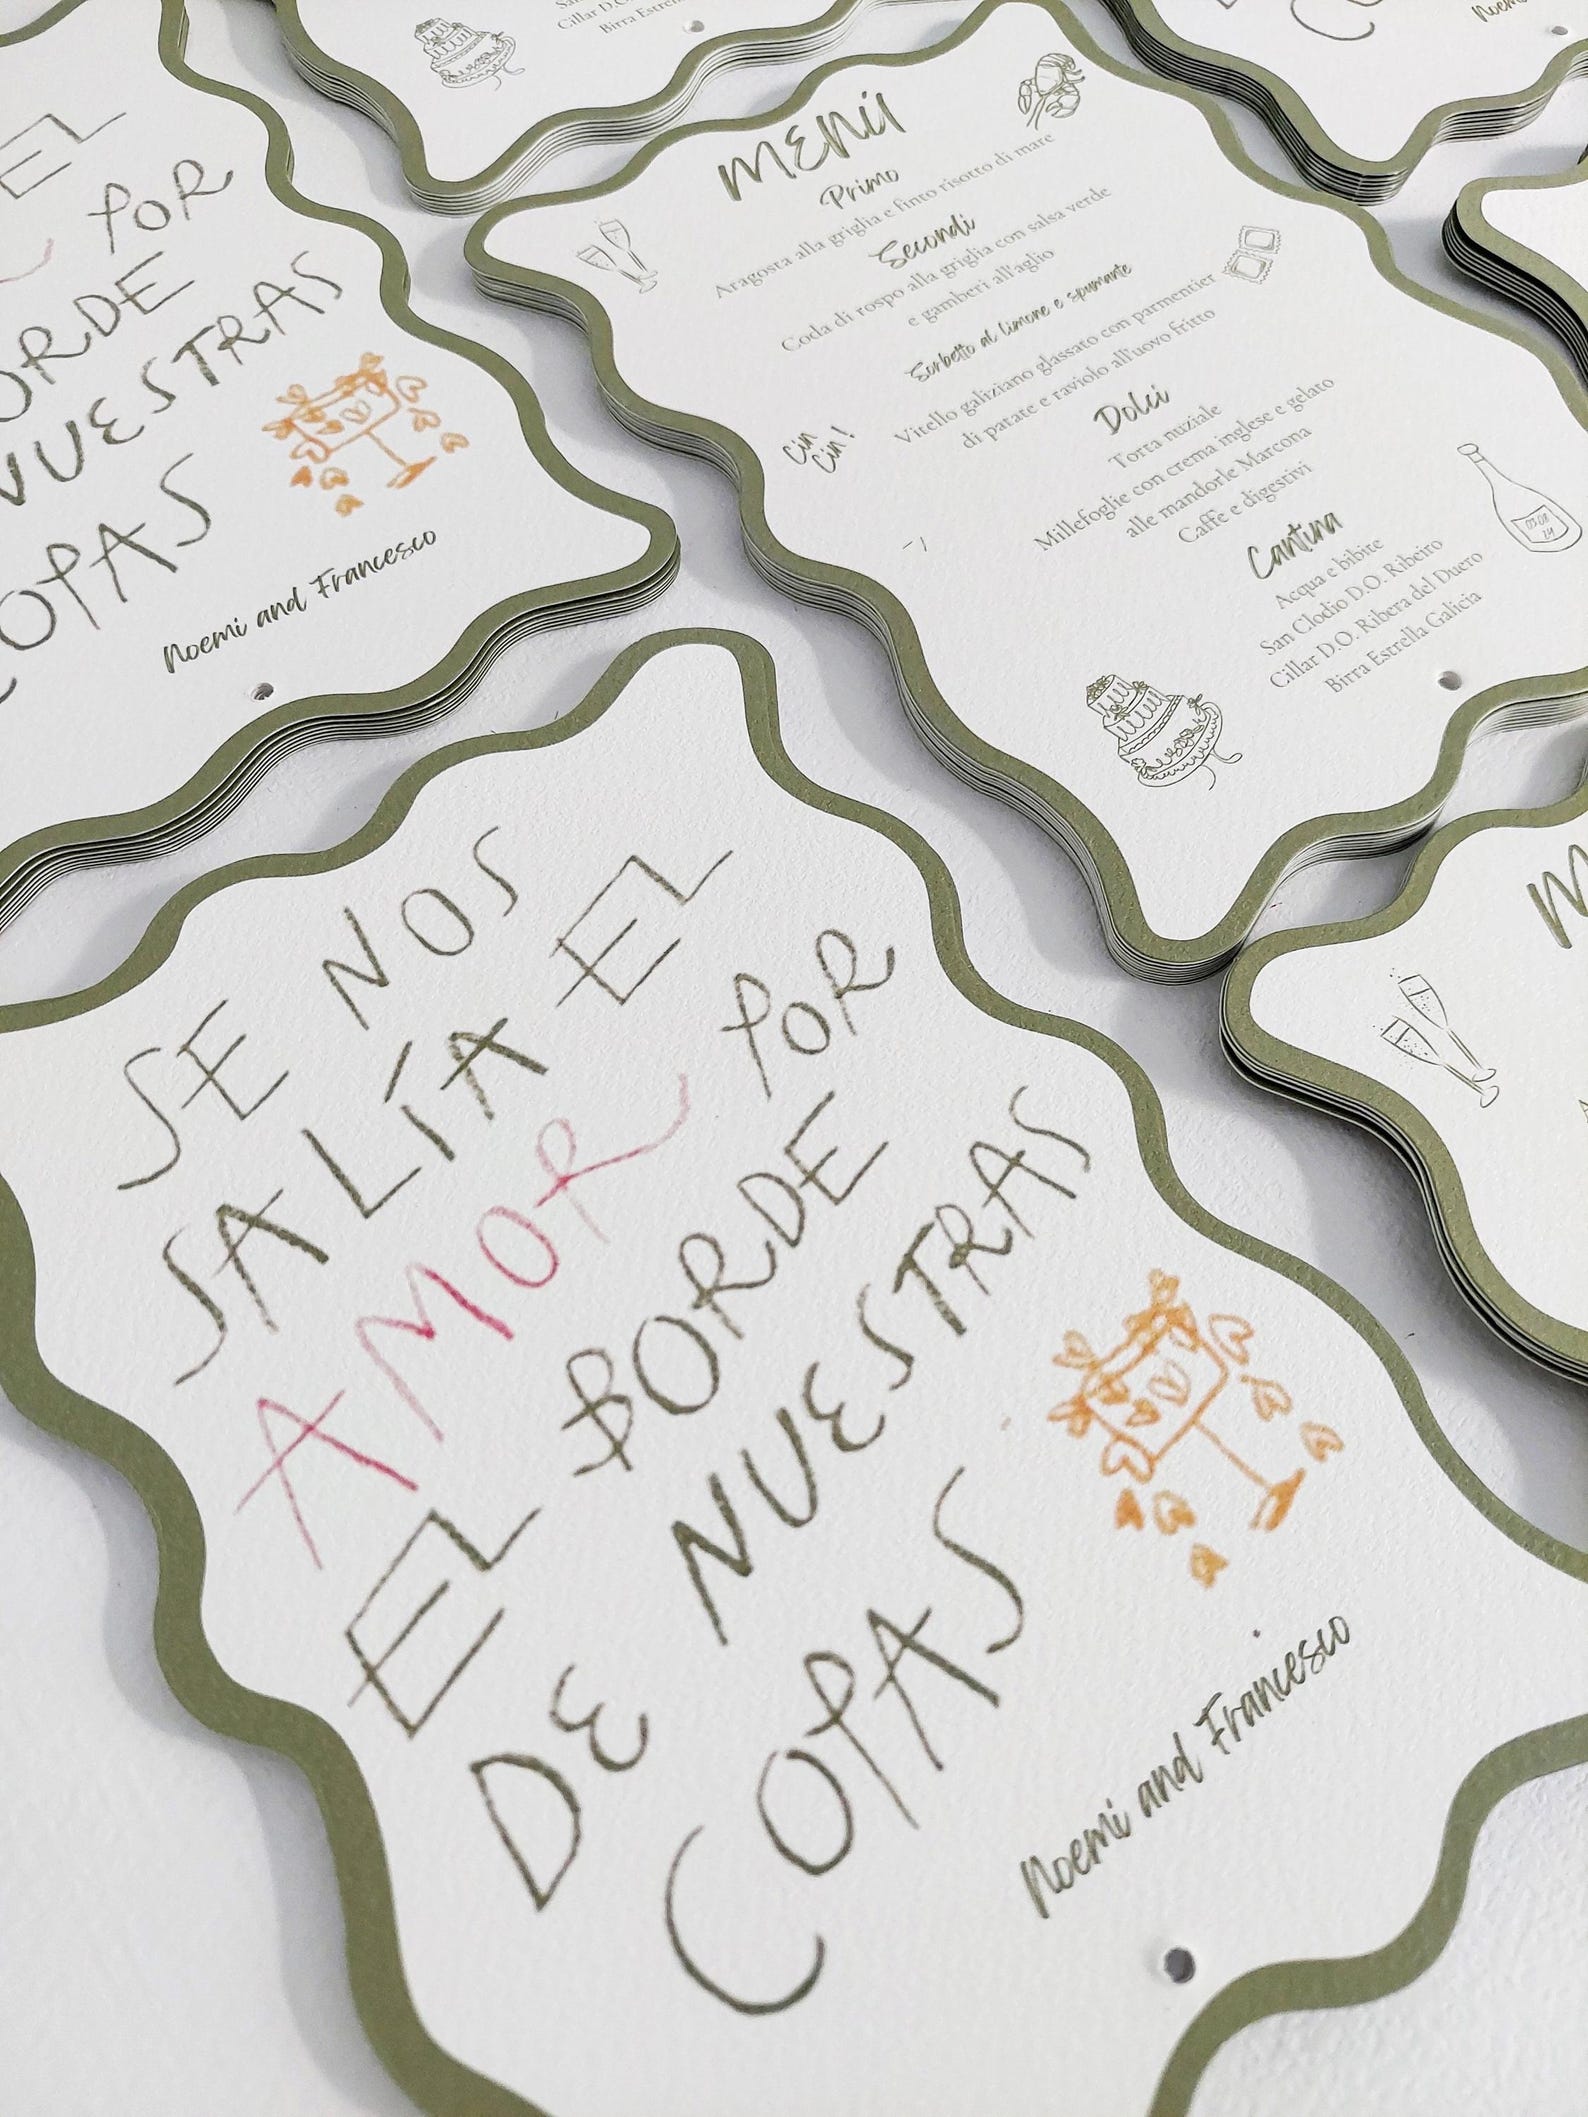 Cillar D.O.
Birra Estrel
Noemi
EL
POR
ORDE
NUESTRAS
COPAS
Noemi and Francesco
MENÙ
Primo
Aragosta alla griglia e finto risotto di mare
Secondi
Coda di rospo alla griglia con salsa verde
e gamberi all'aglio
Sorbetto al limone e spumante
Vitello galiziano glassato con parmentier
di patate e raviolo all'uovo fritto
Dolci
Torta nuziale
Millefoglie con crema inglese e gelato
alle mandorle Marcona
Caffe e digestivi
Cantina
Acqua e bibite
San Clodio D.O. Ribeiro
Cillar D.O. Ribera del Duero
Birra Estrella Galicia
cin
cin!
03.08
24
SE NOS
SALÍA EL
AMOR POR
EL BORDE
DE NUESTRAS
COPAS
Noemi and Francesco
M